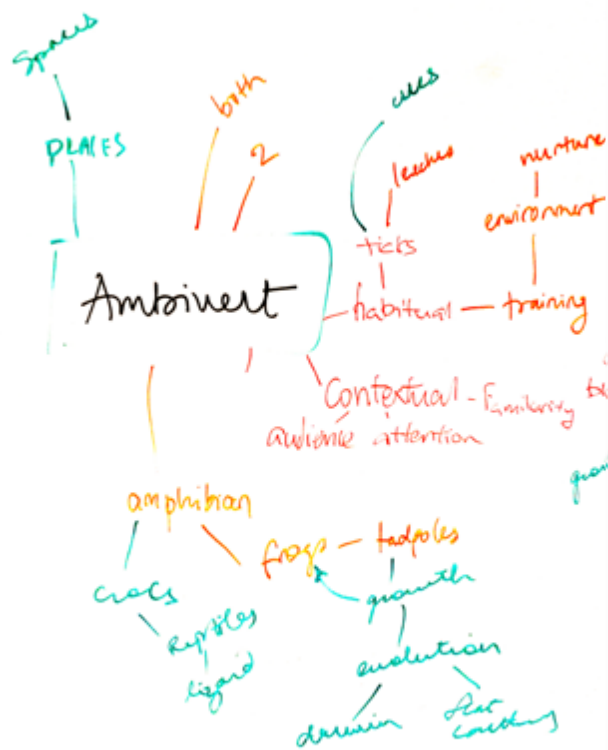 Spaces
PLACES
both
2
cues
leeches
ticks
nurture
environment
Ambivert
habitual
training
Contextual - Familiarity
audience attention
amphibian
frogs
tadpoles
crocs
growth
Reptiles
lizard
evolution
darwin